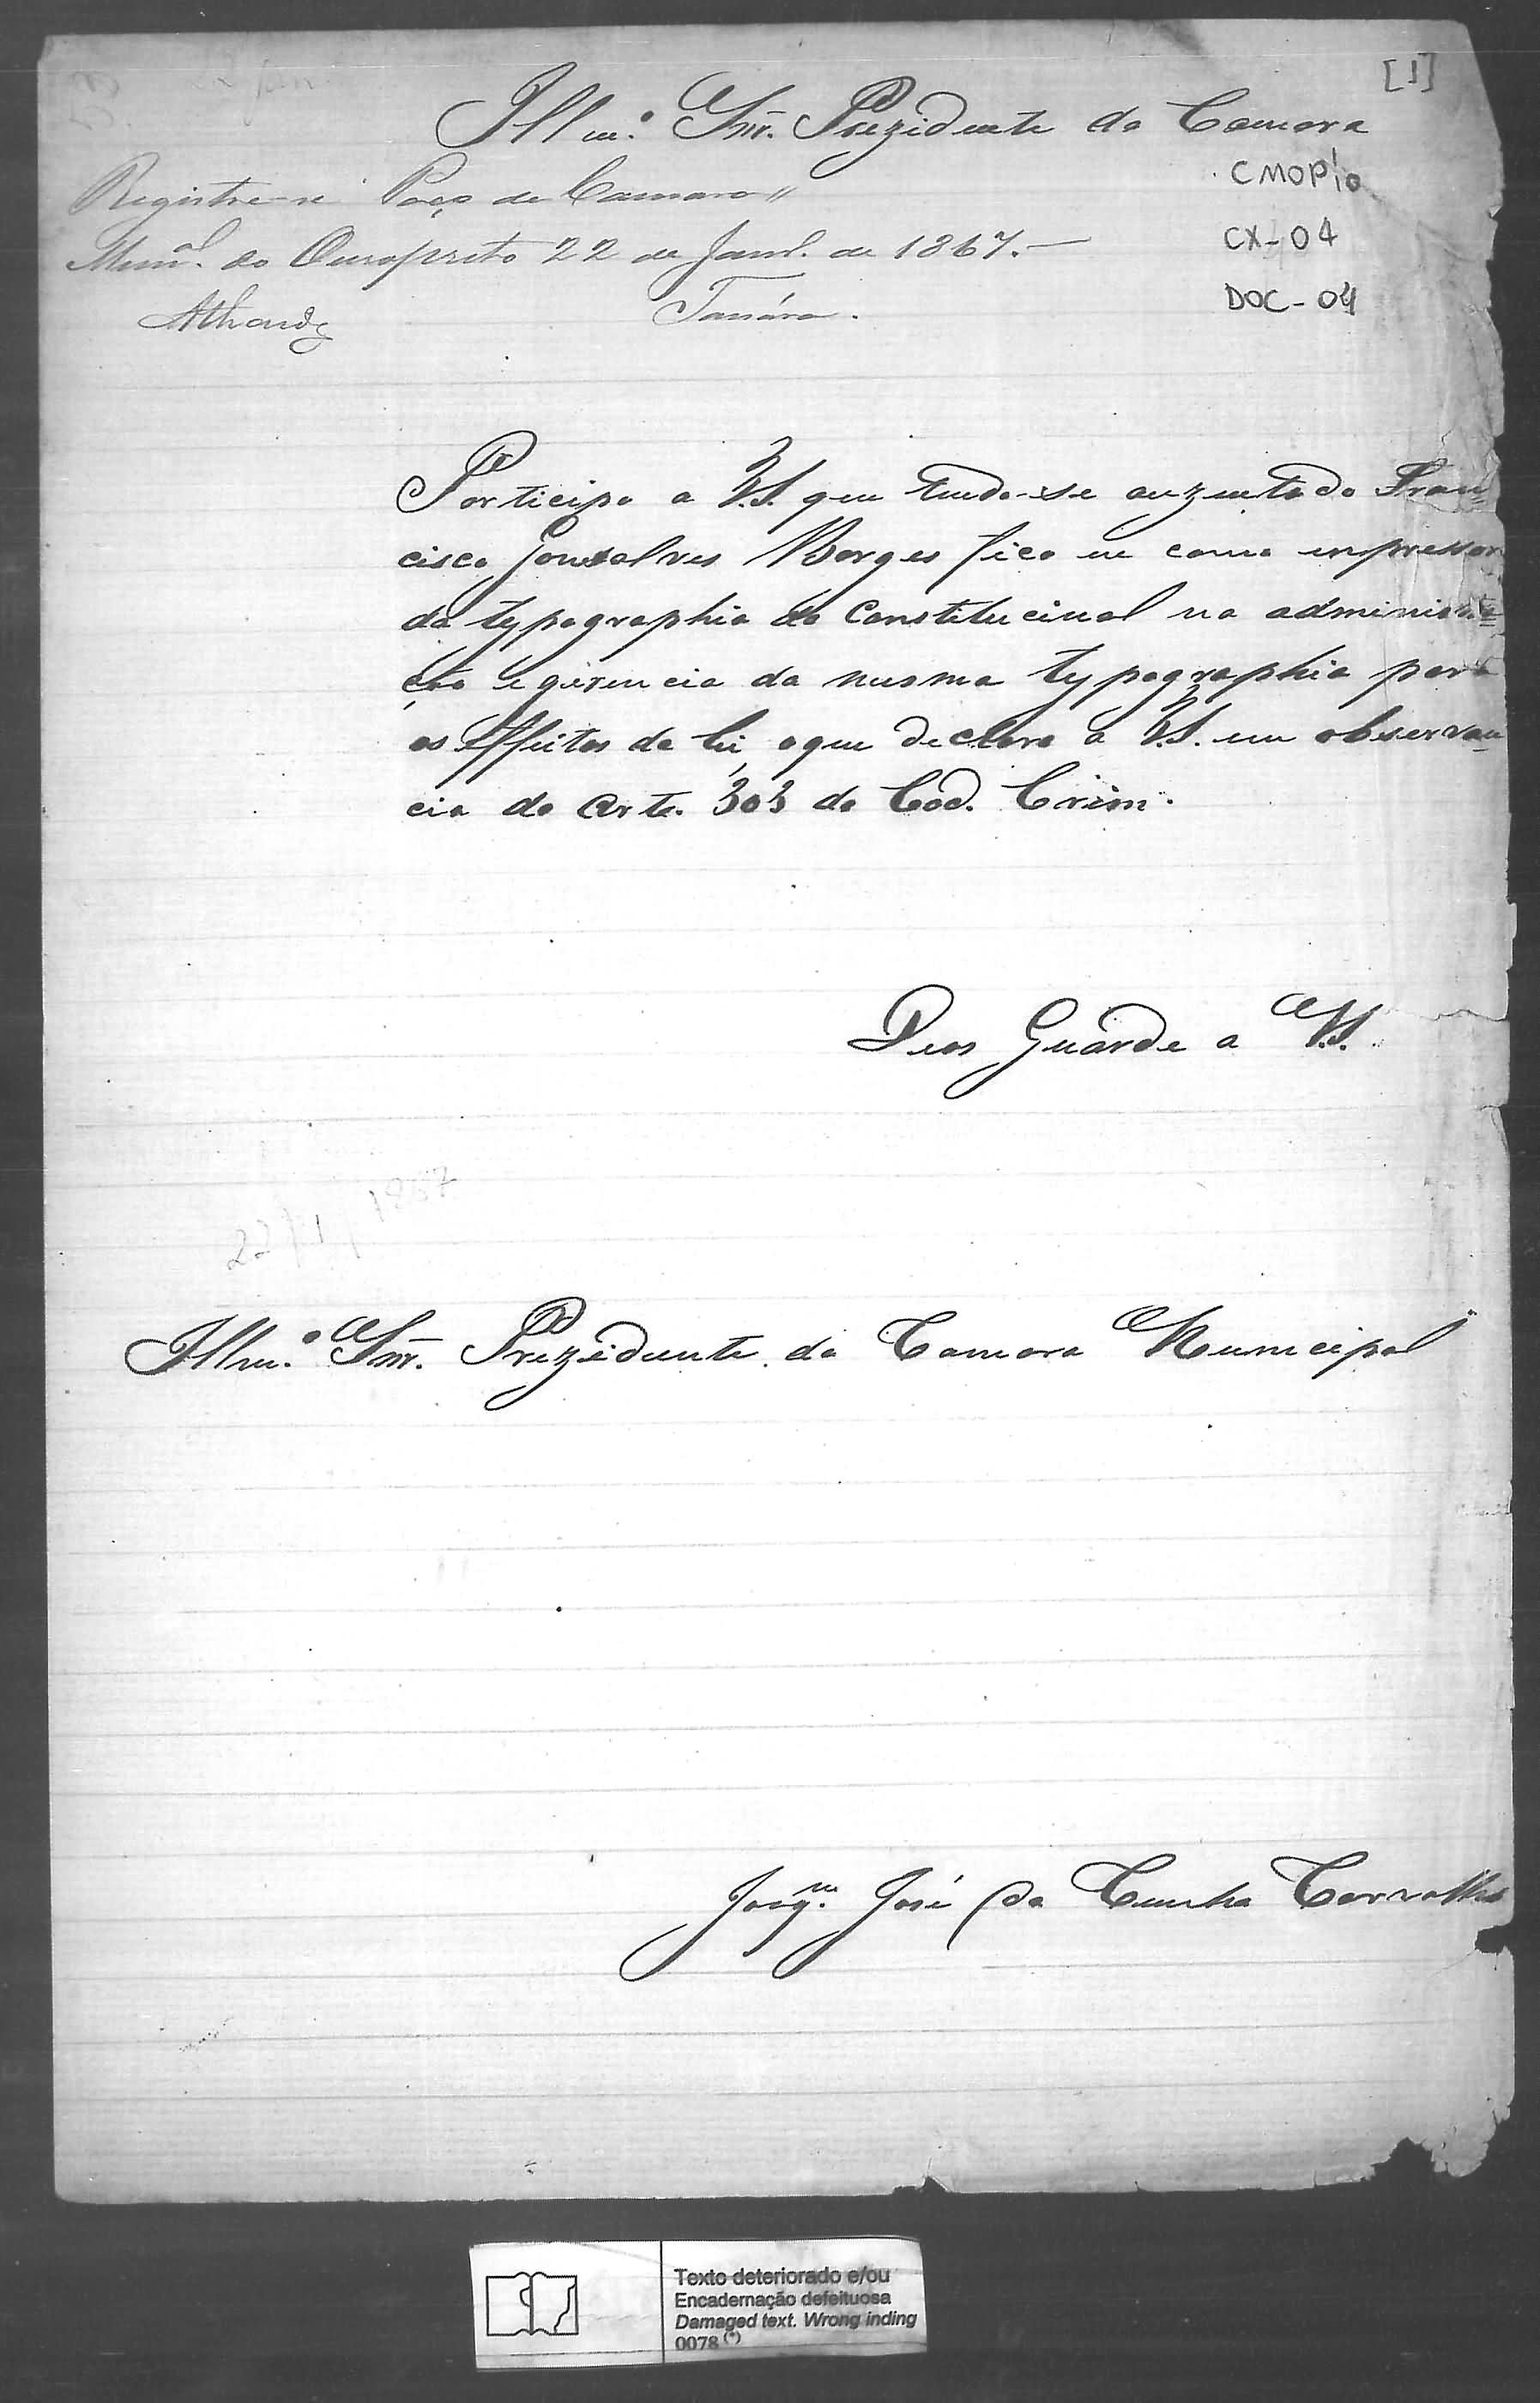 [1]
Illm.º Snr. Prezidente da Camara
CMOP 10
Registre-se Paço da Camara"
CX-04
Mun.al do Ouropreto 22 de Janl. de 1867.—
DOC-04
Participo a V.S. que tendo-se auzentado Fran
cisco Gonsalves Borges fico eu como impressor
da typographia do Constitucinal na administra=
ção e gerencia da mesma typographia para
os Effeitos da lei, o que declaro a V.S. em observan
cia do Arte. 303 do Cod. Crim.
Deos Guarde a V.S.
22/1/1867
Illm.º Snr. Prezidente da Camara Municipal
Joaq.m José da Cunha Carvalho
Texto deteriorado e/ou
Encadernação defeituosa
Damaged text. Wrong inding
0078 (*)